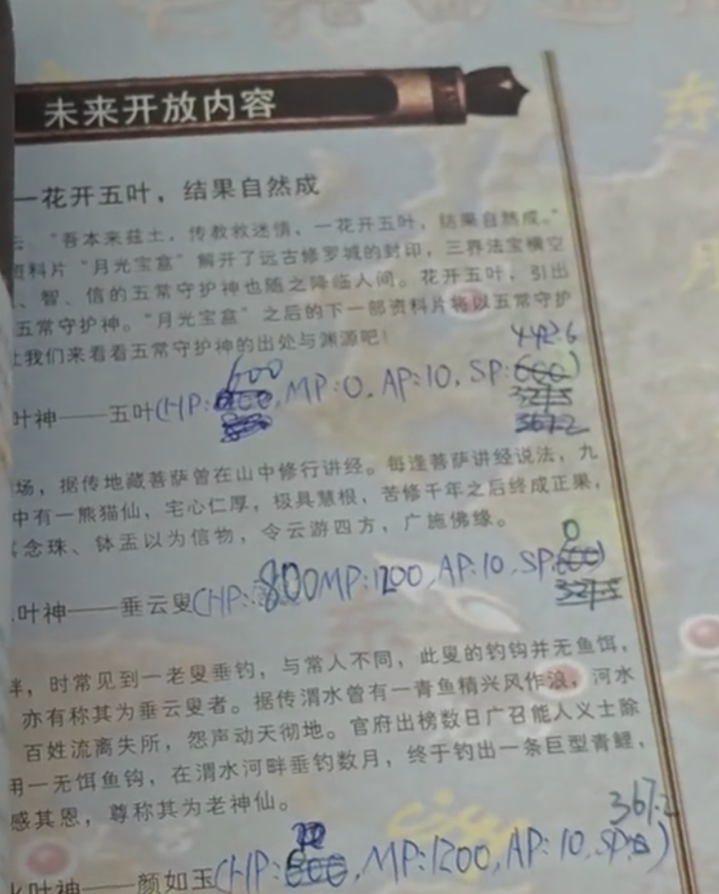 未来开放内容
一花开五叶，结果自然成
“吾本来兹土，传教救迷情，一花开五叶，结果自然成。”
资料片“月光宝盒”解开了远古修罗城的封印，三界法宝横空
、智、信的五常守护神也随之降临人间。花开五叶，引出
五常守护神。“月光宝盒”之后的下一部资料片将以五常守护
让我们来看看五常守护神的出处与渊源吧！
442.6
600
叶神——五叶(HP: ,MP:0,AP:10,SP: )
327.5
367.2
场，据传地藏菩萨曾在山中修行讲经。每逢菩萨讲经说法，九
中有一熊猫仙，宅心仁厚，极具慧根，苦修千年之后终成正果，
念珠、钵盂以为信物，令云游四方，广施佛缘。
0
叶神——垂云叟(HP:800MP:1200,AP:10,SP:600)
327.5
畔，时常见到一老叟垂钓，与常人不同，此叟的钓钩并无鱼饵，
亦有称其为垂云叟者。据传渭水曾有一青鱼精兴风作浪，河水
百姓流离失所，怨声动天彻地。官府出榜数日广召能人义士除
用一无饵鱼钩，在渭水河畔垂钓数月，终于钓出一条巨型青鲤，
感其恩，尊称其为老神仙。
367.2
叶神——颜如玉(HP:600,MP:1200,AP:10,SP: )